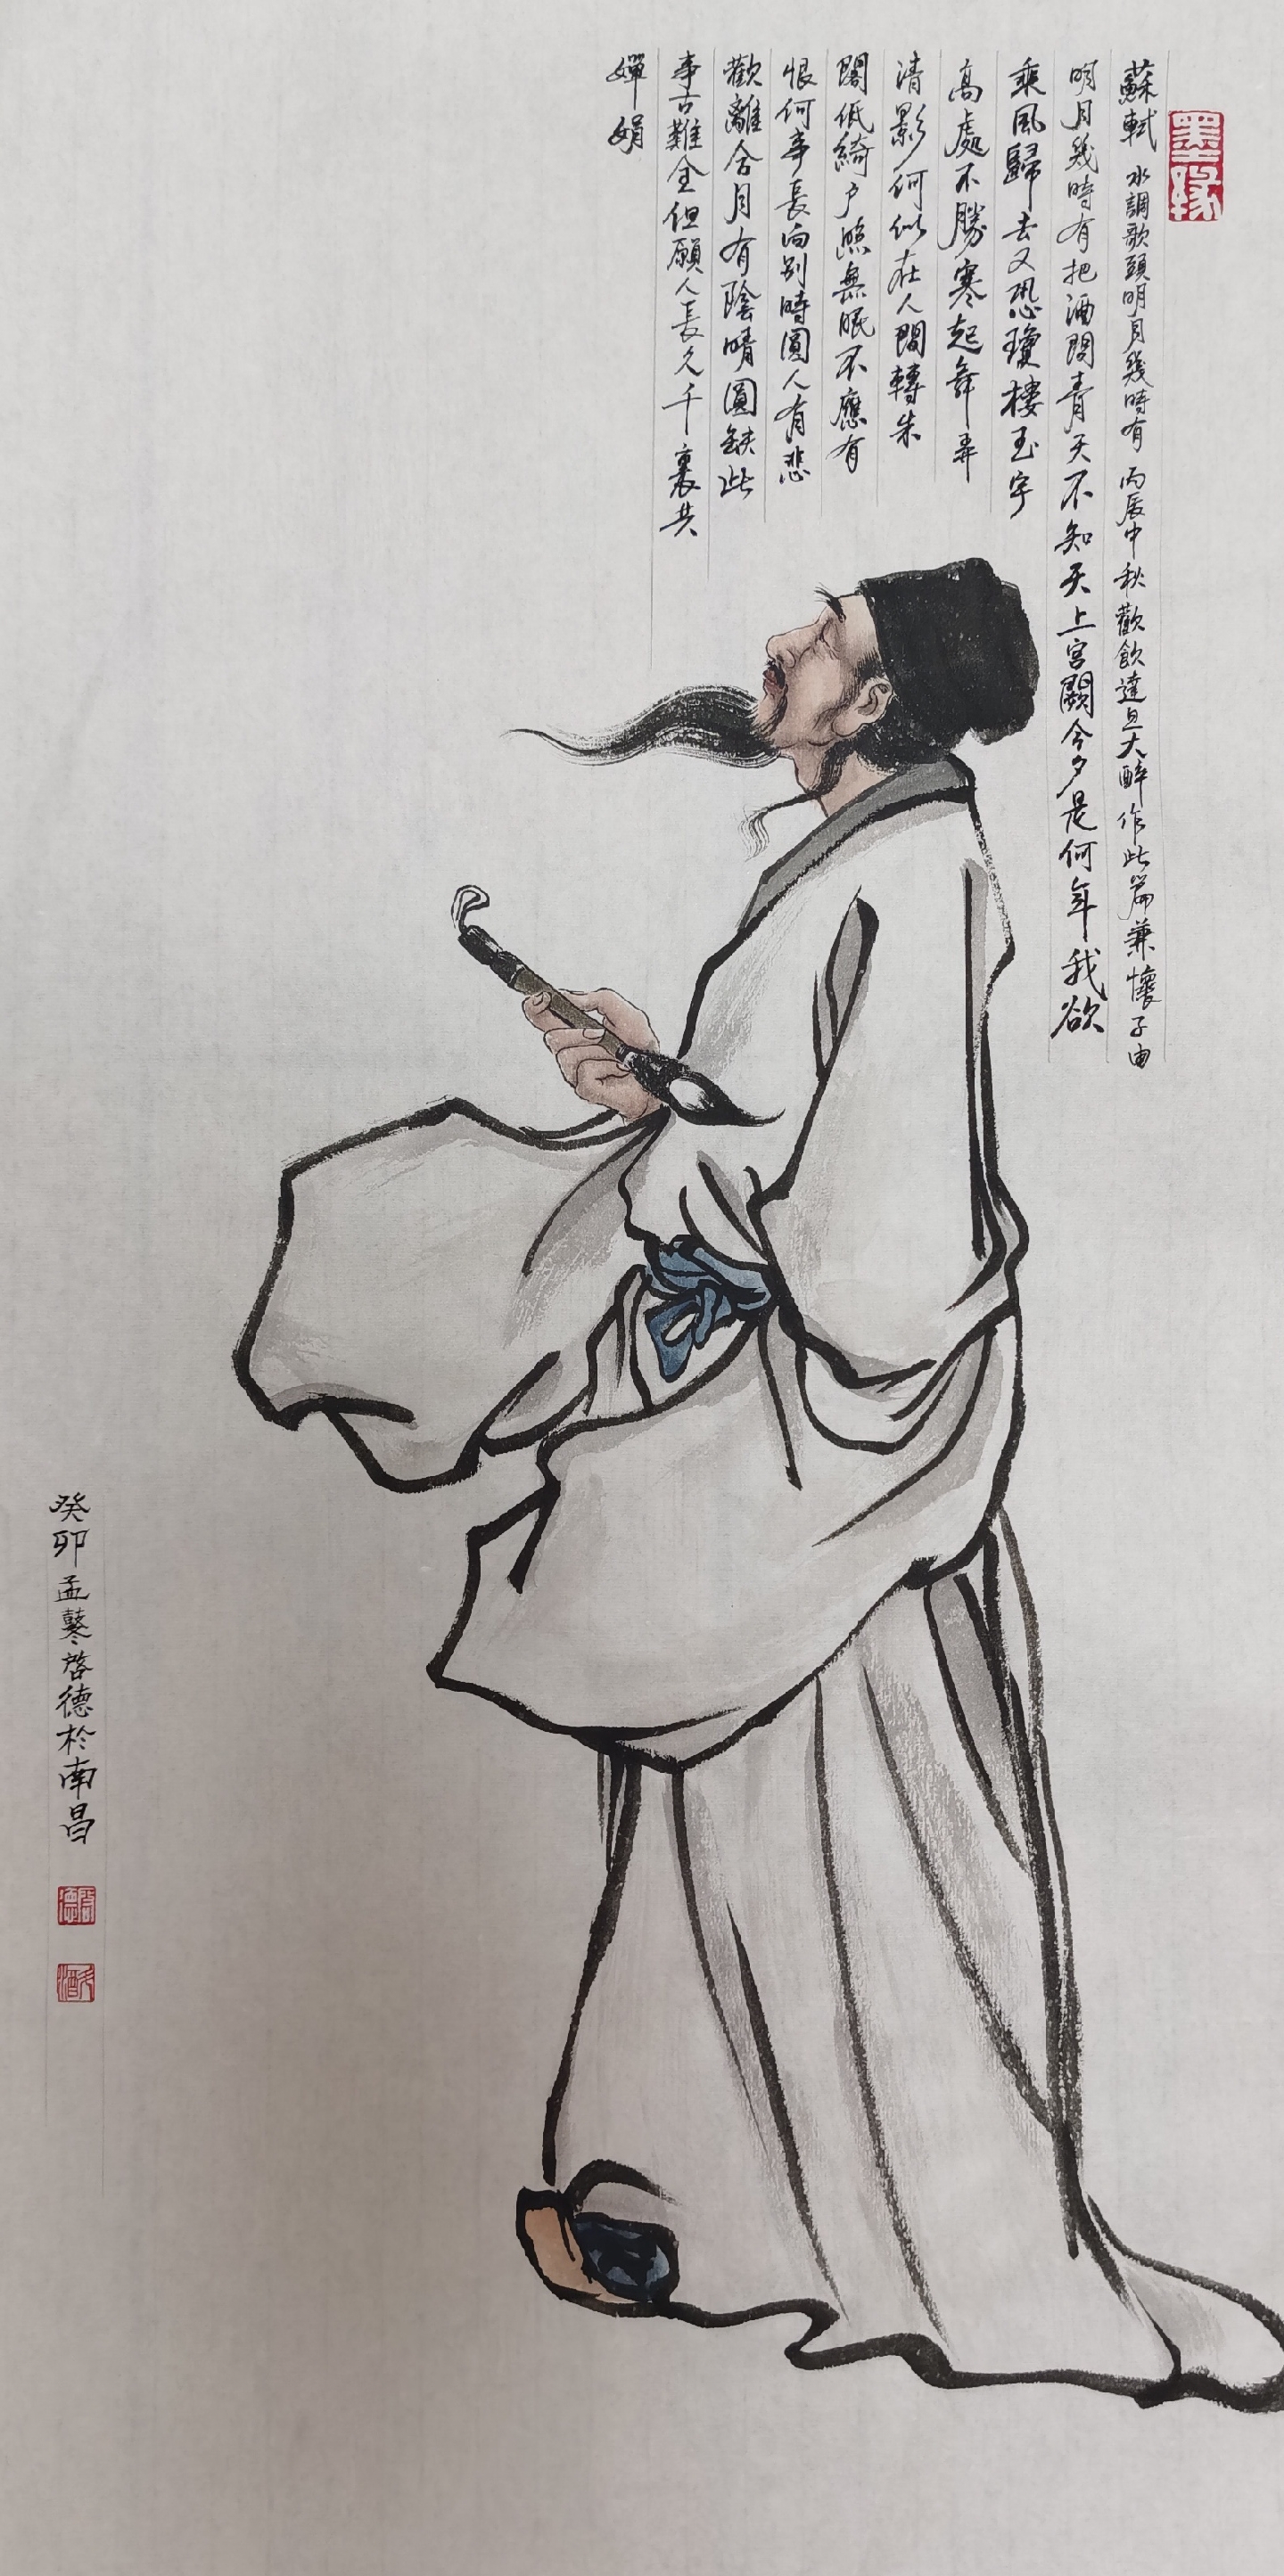 墨緣
蘇軾 水調歌頭明月幾時有 丙辰中秋歡飲達旦大醉作此篇兼懷子由
明月幾時有把酒問青天不知天上宮闕今夕是何年我欲
乘風歸去又恐瓊樓玉宇
高處不勝寒起舞弄
清影何似在人間轉朱
閣低綺戶照無眠不應有
恨何事長向別時圓人有悲
歡離合月有陰晴圓缺此
事古難全但願人長久千裏共
嬋娟
癸卯孟鼕啓德於南昌